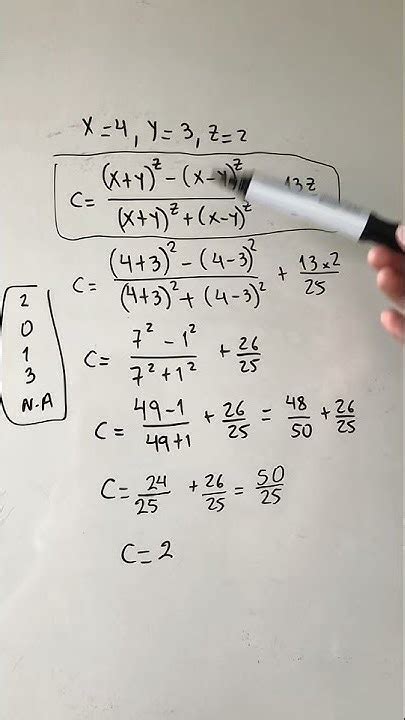 X=4, Y=3, Z=2
C= (x+y)^z - (x-y)^z / (x+y)^z + (x-y)^z 13z
C= (4+3)^2 - (4-3)^2 / (4+3)^2 + (4-3)^2 + 13×2/25
C= 7^2 - 1^2 / 7^2 + 1^2 + 26/25
C= 49-1 / 49+1 + 26/25 = 48/50 + 26/25
C= 24/25 + 26/25 = 50/25
C=2
2
0
1
3
N.A